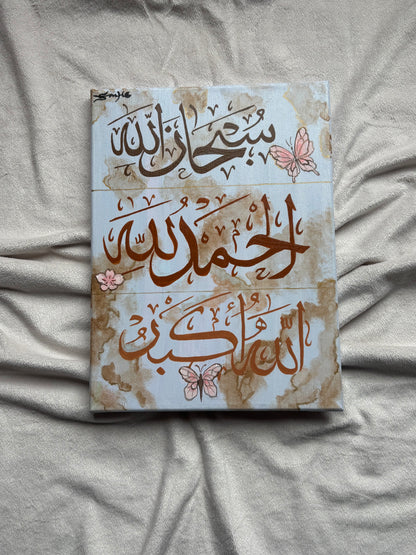 سُبْحَانَ اللَّهِ
الْحَمْدُ لِلَّهِ
اللَّهُ أَكْبَرُ